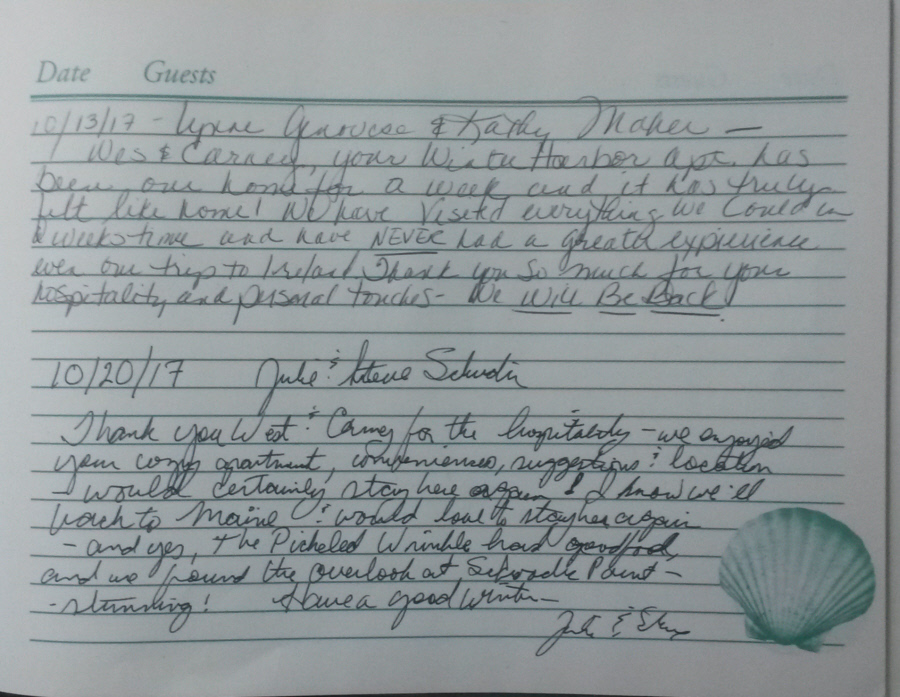 Date Guests
10/13/17 - Lynne Genovese & Kathy Maher —
Wes & Carney, your Winter Harbor apt. has
been our home for a week and it has truly
felt like home! We have Visited everything we Could in
a weeks time and have NEVER had a greater experience
even our trip to Ireland. Thank you so much for your
hospitality and personal touches - We Will Be Back!
10/20/17 Julie & Steve
Thank you West & Carney for the hospitality - we enjoyed
your cozy apartment, conveniences, suggestions & location
- would certainly stay here again & I know we'll
back to Maine & would love to stay here again
- and yes, the Pickeled Wrinkle had good food,
and we found the overlook at Schoodic Point -
- stunning! Have a good winter -
Julie & Steve